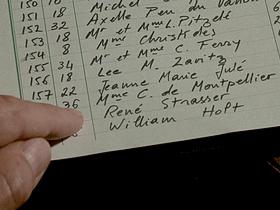 150 18 Michel
151 18 Axelle Pen du
152 32 Mr et Mme L. Pitzelé
153 18 Mme Christidès
154 8 Mr et Mme C. Ferry
155 34 Lee M. Zavitz
156 18 Jeanne Marie Julé
157 22 Mme C. de Montpellier
36 René Strasser
William Hoft